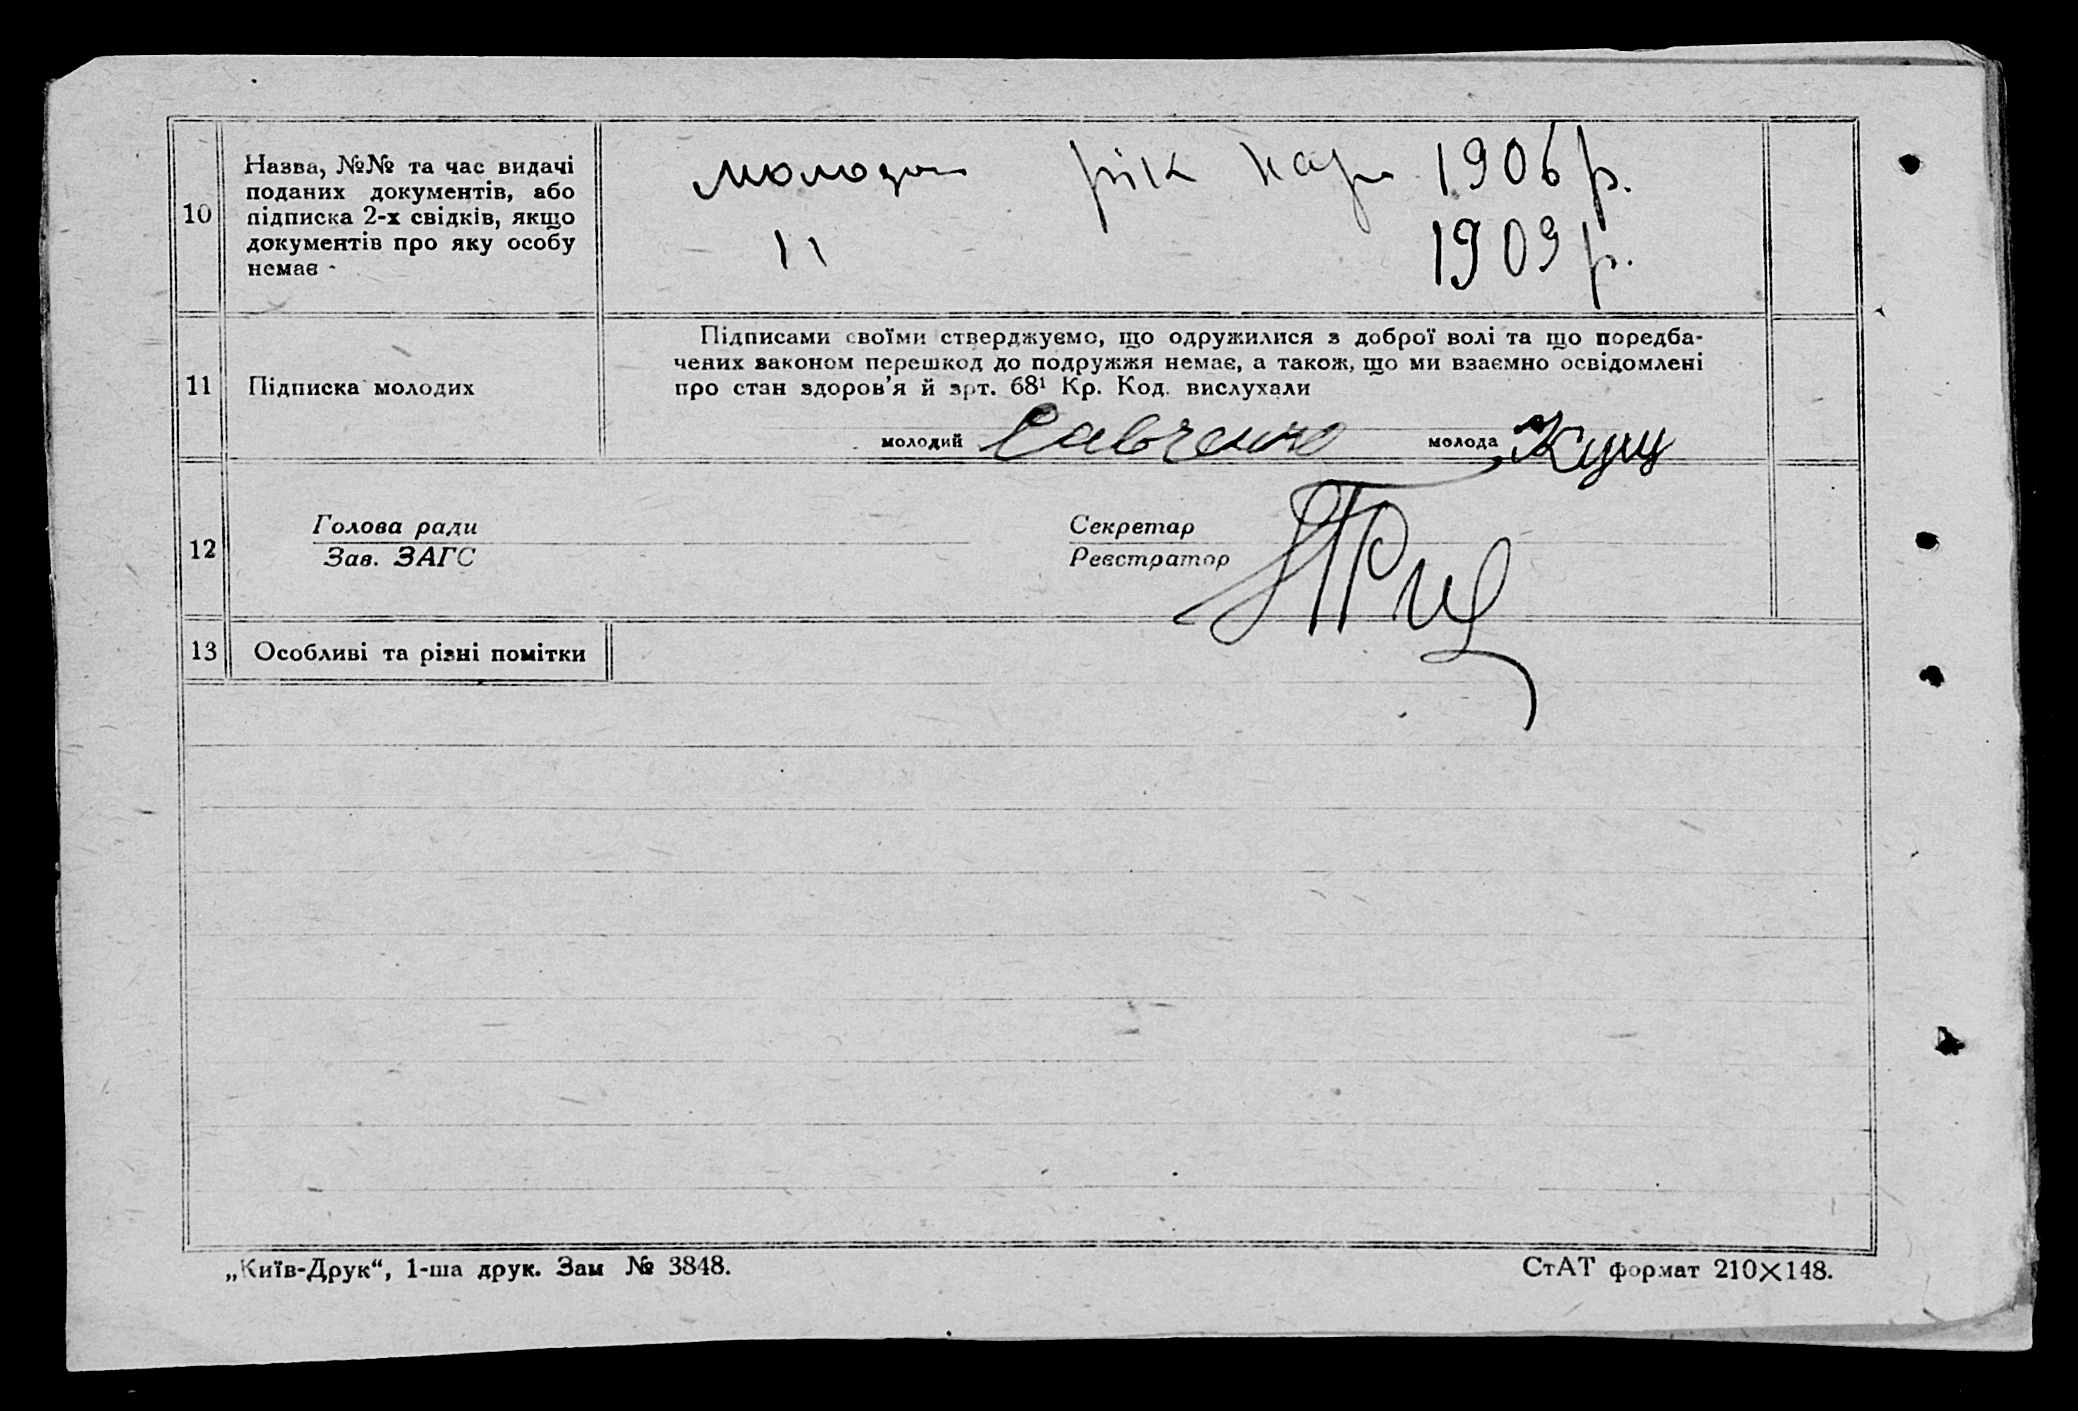 10
Назва, №№ та час видачі
поданих документів, або
підписка 2-х свідків, якщо
документів про яку особу
немає -
рік нар 1906 р.
11 1909 р.
11
Підписка молодих
Підписами своїми стверджуємо, що одружилися з доброї волі та що поредба-
чених законом перешкод до подружжя немає, а також, що ми взаємно освідомлені
про стан здоров'я й арт. 68¹ Кр. Код. вислухали
молодий Савченко молода Кущ
12
Голова ради
Зав. ЗАГС
Секретар
Реєстратор
13
Особливі та різні помітки
„Київ-Друк“, 1-ша друк. Зам № 3848.
СтАТ формат 210×148.